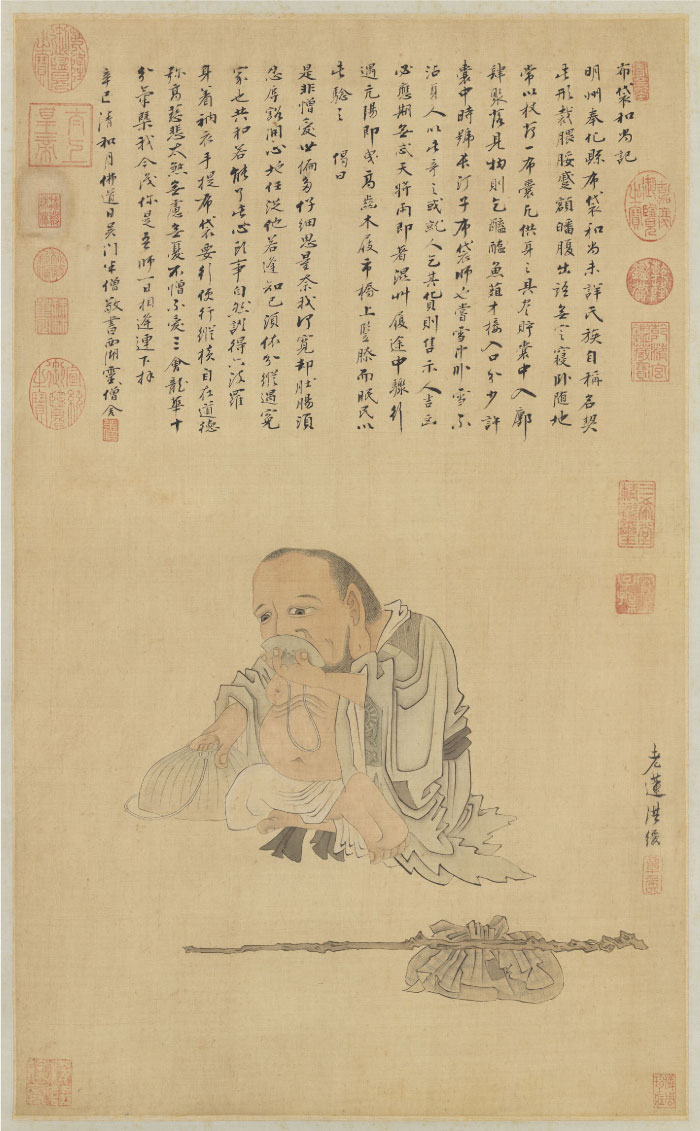 布袋和尚記
明州奉化縣布袋和尚未詳氏族自稱名契
此形裁腲脮蹙額皤腹出語無定寢臥隨地
常以杖荷一布囊凡供身之具盡貯囊中入鄽
肆聚落見物則乞醯醢魚葅才接入口分少許
囊中時號長汀子布袋師也嘗雪中臥雪不
沾身人以此奇之或就人乞其貨則售示人吉凶
必應期無忒天將雨即著濕草屨途中驟行
遇亢陽即曳高齒木屐市橋上豎膝而眠民以
此驗之 偈曰
是非憎愛世偏多仔細思量奈我何寬却肚腸須
忍辱豁開心地任從他若逢知己須依分縱遇冤
家也共和若能了此心頭事自然證得六波羅
身着衲衣手提布袋要行便行縱橫自在道德
彌高慈悲太煞無慮無憂不憎不愛三會龍華十
分 我今 你是吾師一日相逢連下拜
辛巳清和月佛道日吳門半僧敬書西湖靈僧舍
老蓮洪綬
嘉慶御覽之寶
三希堂精鑑璽
宜子孫
宣統御覽之寶